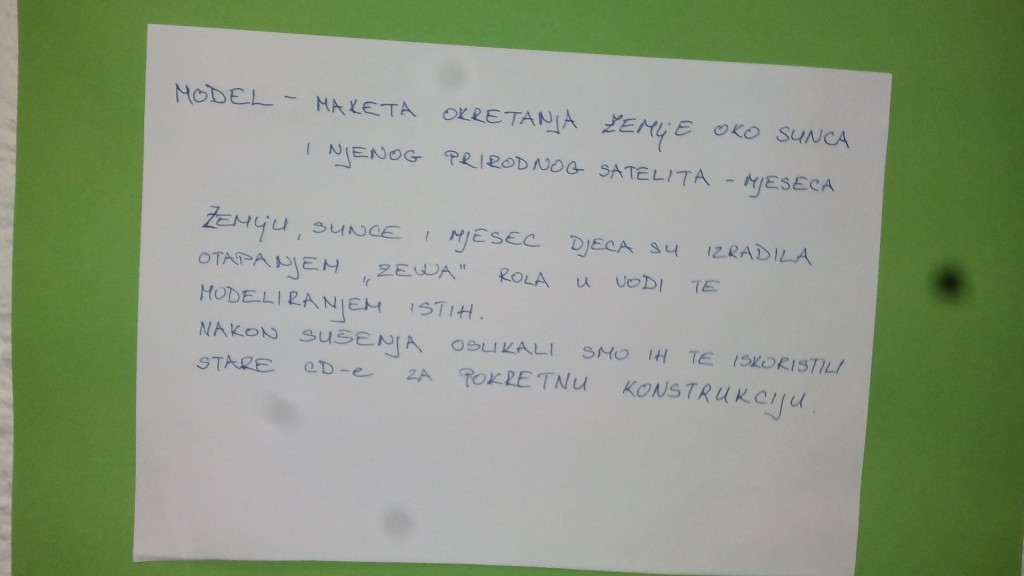 MODEL - MAKETA OKRETANJA ZEMLJE OKO SUNCA
I NJENOG PRIRODNOG SATELITA - MJESECA
ZEMLJU, SUNCE I MJESEC DJECA SU IZRADILA
OTAPANJEM „ZEWA" ROLA U VODI TE
MODELIRANJEM ISTIH.
NAKON SUŠENJA OSLIKALI SMO IH TE ISKORISTILI
STARE CD-e ZA POKRETNU KONSTRUKCIJU.